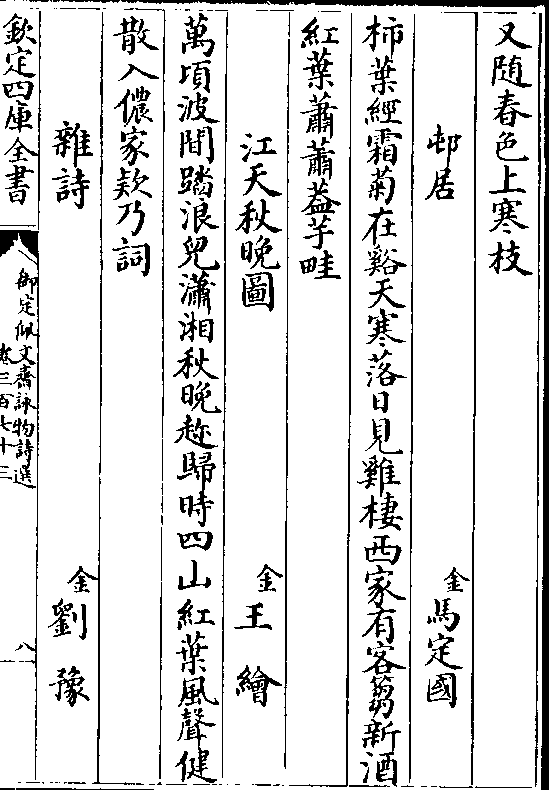 又随春色上寒枝
邨居 金 馬定國
柿葉經霜菊在谿天寒落日見雞棲西家有客篘新酒
紅葉蕭蕭蓋芋畦
江天秋晚圖 金 王繪
萬頃波間蹋浪兒瀟湘秋晚趂歸時四山紅葉風聲健
散入儂家欵乃詞
雜詩 金 劉豫
欽定四庫全書 御定佩文齋詠物詩選 卷三百七十三 八